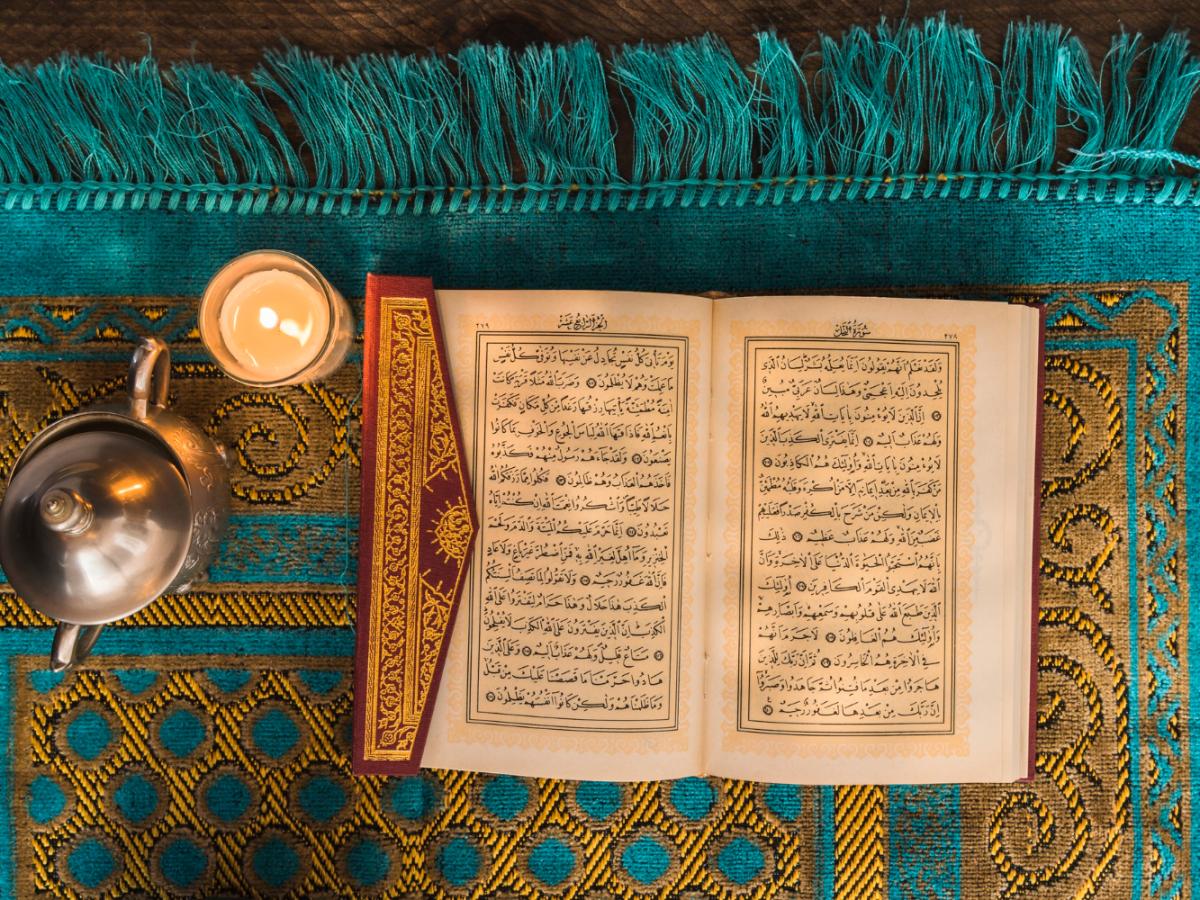 سُورَةُ النَّحْلِ ٢٧٨
وَلَقَدْ نَعْلَمُ أَنَّهُمْ يَقُولُونَ إِنَّمَا يُعَلِّمُهُ بَشَرٌ لِسَانُ الَّذِى
يُلْحِدُونَ إِلَيْهِ أَعْجَمِىٌّ وَهَذَا لِسَانٌ عَرَبِىٌّ مُبِينٌ
۝ إِنَّ الَّذِينَ لَا يُؤْمِنُونَ بِآيَاتِ اللَّهِ لَا يَهْدِيهِمُ اللَّهُ
وَلَهُمْ عَذَابٌ أَلِيمٌ ۝ إِنَّمَا يَفْتَرِى الْكَذِبَ الَّذِينَ
لَا يُؤْمِنُونَ بِآيَاتِ اللَّهِ وَأُولَئِكَ هُمُ الْكَاذِبُونَ ۝
مَنْ كَفَرَ بِاللَّهِ مِنْ بَعْدِ إِيمَانِهِ إِلَّا مَنْ أُكْرِهَ وَقَلْبُهُ مُطْمَئِنٌّ
بِالْإِيمَانِ وَلَكِنْ مَنْ شَرَحَ بِالْكُفْرِ صَدْرًا فَعَلَيْهِمْ
غَضَبٌ مِنَ اللَّهِ وَلَهُمْ عَذَابٌ عَظِيمٌ ۝ ذَلِكَ
بِأَنَّهُمُ اسْتَحَبُّوا الْحَيَوةَ الدُّنْيَا عَلَى الْآخِرَةِ وَأَنَّ
اللَّهَ لَا يَهْدِى الْقَوْمَ الْكَافِرِينَ ۝ أُولَئِكَ
الَّذِينَ طَبَعَ اللَّهُ عَلَى قُلُوبِهِمْ وَسَمْعِهِمْ وَأَبْصَارِهِمْ
وَأُولَئِكَ هُمُ الْغَافِلُونَ ۝ لَا جَرَمَ أَنَّهُمْ
فِى الْآخِرَةِ هُمُ الْخَاسِرُونَ ۝ ثُمَّ إِنَّ رَبَّكَ لِلَّذِينَ
هَاجَرُوا مِنْ بَعْدِ مَا فُتِنُوا ثُمَّ جَاهَدُوا وَصَبَرُوا
إِنَّ رَبَّكَ مِنْ بَعْدِهَا لَغَفُورٌ رَحِيمٌ ۝
الجُزْءُ الرَّابِعَ عَشَرَ ٢٧٩
يَوْمَ تَأْتِى كُلُّ نَفْسٍ تُجَادِلُ عَنْ نَفْسِهَا وَتُوَفَّى كُلُّ نَفْسٍ
مَا عَمِلَتْ وَهُمْ لَا يُظْلَمُونَ ۝ وَضَرَبَ اللَّهُ مَثَلًا قَرْيَةً كَانَتْ
آمِنَةً مُطْمَئِنَّةً يَأْتِيهَا رِزْقُهَا رَغَدًا مِنْ كُلِّ مَكَانٍ فَكَفَرَتْ
بِأَنْعُمِ اللَّهِ فَأَذَاقَهَا اللَّهُ لِبَاسَ الْجُوعِ وَالْخَوْفِ بِمَا كَانُوا
يَصْنَعُونَ ۝ وَلَقَدْ جَاءَهُمْ رَسُولٌ مِنْهُمْ فَكَذَّبُوهُ
فَأَخَذَهُمُ الْعَذَابُ وَهُمْ ظَالِمُونَ ۝ فَكُلُوا مِمَّا رَزَقَكُمُ اللَّهُ
حَلَالًا طَيِّبًا وَاشْكُرُوا نِعْمَةَ اللَّهِ إِنْ كُنْتُمْ إِيَّاهُ
تَعْبُدُونَ ۝ إِنَّمَا حَرَّمَ عَلَيْكُمُ الْمَيْتَةَ وَالدَّمَ وَلَحْمَ
الْخِنْزِيرِ وَمَا أُهِلَّ لِغَيْرِ اللَّهِ بِهِ فَمَنِ اضْطُرَّ غَيْرَ بَاغٍ وَلَا عَادٍ
فَإِنَّ اللَّهَ غَفُورٌ رَحِيمٌ ۝ وَلَا تَقُولُوا لِمَا تَصِفُ أَلْسِنَتُكُمُ
الْكَذِبَ هَذَا حَلَالٌ وَهَذَا حَرَامٌ لِتَفْتَرُوا عَلَى اللَّهِ
الْكَذِبَ إِنَّ الَّذِينَ يَفْتَرُونَ عَلَى اللَّهِ الْكَذِبَ لَا يُفْلِحُونَ
۝ مَتَاعٌ قَلِيلٌ وَلَهُمْ عَذَابٌ أَلِيمٌ ۝ وَعَلَى الَّذِينَ
هَادُوا حَرَّمْنَا مَا قَصَصْنَا عَلَيْكَ مِنْ قَبْلُ
وَمَا ظَلَمْنَاهُمْ وَلَكِنْ كَانُوا أَنْفُسَهُمْ يَظْلِمُونَ ۝